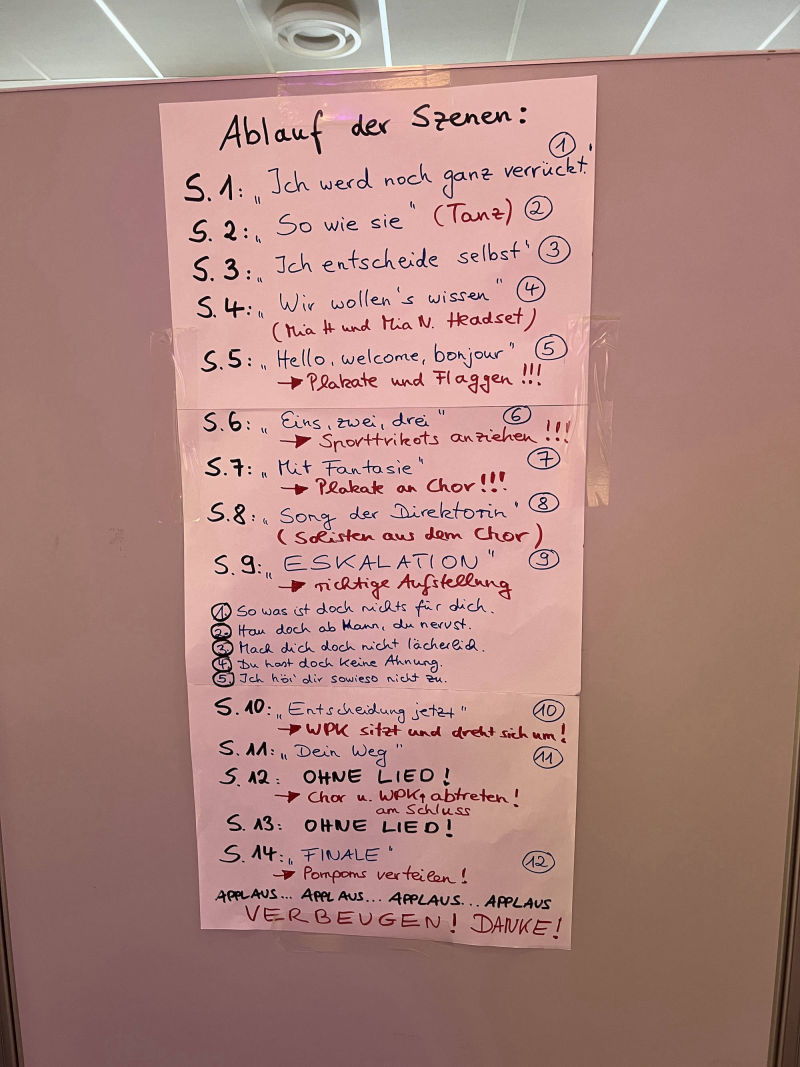 Ablauf der Szenen:
S. 1: „Ich werd noch ganz verrückt." ①
S. 2: „So wie sie" (Tanz) ②
S. 3: „Ich entscheide selbst" ③
S. 4: „Wir wollen's wissen" ④
(Mia H und Mia N. Headset)
S. 5: „Hello, welcome, bonjour" ⑤
→ Plakate und Flaggen !!!
S. 6: „Eins, zwei, drei" ⑥
→ Sporttrikots anziehen !!!
S. 7: „Mit Fantasie" ⑦
→ Plakate an Chor!!!
S. 8: „Song der Direktorin" ⑧
(Solisten aus dem Chor)
S. 9: „ESKALATION" ⑨
→ richtige Aufstellung
① So was ist doch nichts für dich.
② Hau doch ab Mann, du nervst.
③ Mach dich doch nicht lächerlich.
④ Du hast doch keine Ahnung.
⑤ Ich hör' dir sowieso nicht zu.
S. 10: „Entscheidung jetzt" ⑩
→ WPK sitzt und dreht sich um!
S. 11: „Dein Weg" ⑪
S. 12: OHNE LIED!
→ Chor u. WPK abtreten!
am Schluss
S. 13: OHNE LIED!
S. 14: „FINALE" ⑫
→ Pompoms verteilen!
APPLAUS... APPLAUS... APPLAUS... APPLAUS
VERBEUGEN! DANKE!